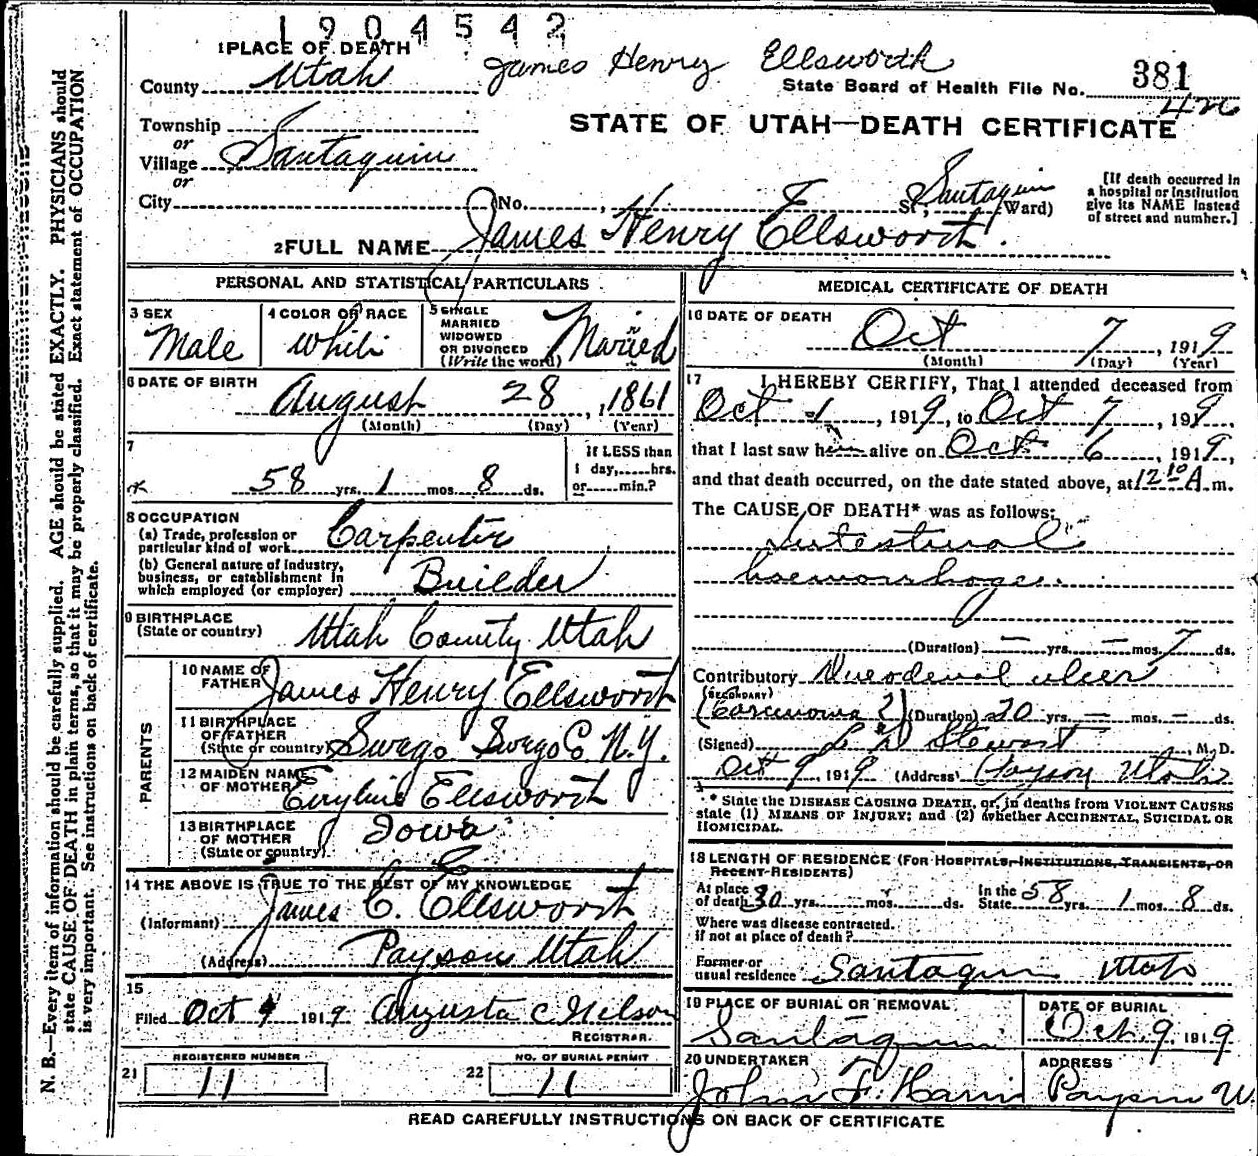 1904542
1 PLACE OF DEATH
James Henry Ellsworth
County Utah
State Board of Health File No. 381
426
Township
or
Village Santaquin
or
City
STATE OF UTAH—DEATH CERTIFICATE
(No. , St., Santaquin Ward)
[If death occurred in
a hospital or institution
give its NAME instead
of street and number.]
2 FULL NAME James Henry Ellsworth.
PERSONAL AND STATISTICAL PARTICULARS
3 SEX
Male
4 COLOR OR RACE
White
5 SINGLE
MARRIED
WIDOWED
OR DIVORCED
(Write the word)
Married
6 DATE OF BIRTH
August 28, 1861
(Month) (Day) (Year)
7
58 yrs. 1 mos. 8 ds.
If LESS than
1 day, hrs.
or min.?
8 OCCUPATION
(a) Trade, profession or
particular kind of work Carpenter
(b) General nature of industry,
business, or establishment in
which employed (or employer) Builder
9 BIRTHPLACE
(State or country) Utah County Utah
PARENTS
10 NAME OF
FATHER James Henry Ellsworth
11 BIRTHPLACE
OF FATHER
(State or country) Swego Swego Co N.Y.
12 MAIDEN NAME
OF MOTHER Ellsworth
13 BIRTHPLACE
OF MOTHER
(State or country) Iowa
14 THE ABOVE IS TRUE TO THE BEST OF MY KNOWLEDGE
(Informant) James C. Ellsworth
(Address) Payson Utah
15
Filed Oct 9 1919 Augusta C Nelson
REGISTRAR.
REGISTERED NUMBER
21 11
NO. OF BURIAL PERMIT
22 11
MEDICAL CERTIFICATE OF DEATH
16 DATE OF DEATH
Oct 7, 1919
(Month) (Day) (Year)
17 I HEREBY CERTIFY, That I attended deceased from
Oct 1, 1919, to Oct 7, 1919,
that I last saw him alive on Oct 6, 1919,
and that death occurred, on the date stated above, at 12 10 A. m.
The CAUSE OF DEATH* was as follows:
Intestinal
haemorrhage.
(Duration) — yrs. — mos. 7 ds.
Contributory Dueodenal ulcer
(SECONDARY)
(Carcinoma ?) (Duration) 20 yrs. — mos. — ds.
(Signed) Stewart, M. D.
Oct 9, 1919 (Address) Payson Utah
* State the DISEASE CAUSING DEATH, or, in deaths from VIOLENT CAUSES
state (1) MEANS OF INJURY; and (2) whether ACCIDENTAL, SUICIDAL OR
HOMICIDAL.
18 LENGTH OF RESIDENCE (FOR HOSPITALS, INSTITUTIONS, TRANSIENTS, OR
RECENT RESIDENTS)
At place
of death 30 yrs. mos. ds.
In the
State 58 yrs. 1 mos. 8 ds.
Where was disease contracted.
if not at place of death?
Former or
usual residence Santaquin Utah
19 PLACE OF BURIAL OR REMOVAL
Santaquin
DATE OF BURIAL
Oct. 9 1919
20 UNDERTAKER
John F. Harris
ADDRESS
Payson U.
READ CAREFULLY INSTRUCTIONS ON BACK OF CERTIFICATE
N. B.—Every item of information should be carefully supplied. AGE should be stated EXACTLY. PHYSICIANS should
state CAUSE OF DEATH in plain terms, so that it may be properly classified. Exact statement of OCCUPATION
is very important. See instructions on back of certificate.